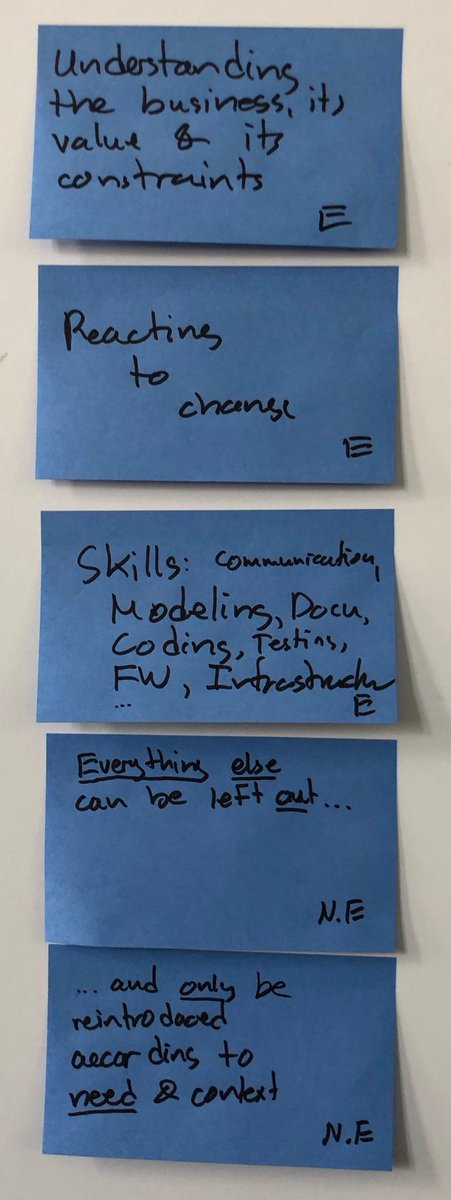 Understanding
the business, its
value & its
constraints
E
Reacting
to
change
E
Skills: Communication,
Modeling, Docu,
Coding, Testing,
FW, Infrastructur
...
E
Everything else
can be left out...
N.E
... and only be
reintroduced
according to
need & context
N.E